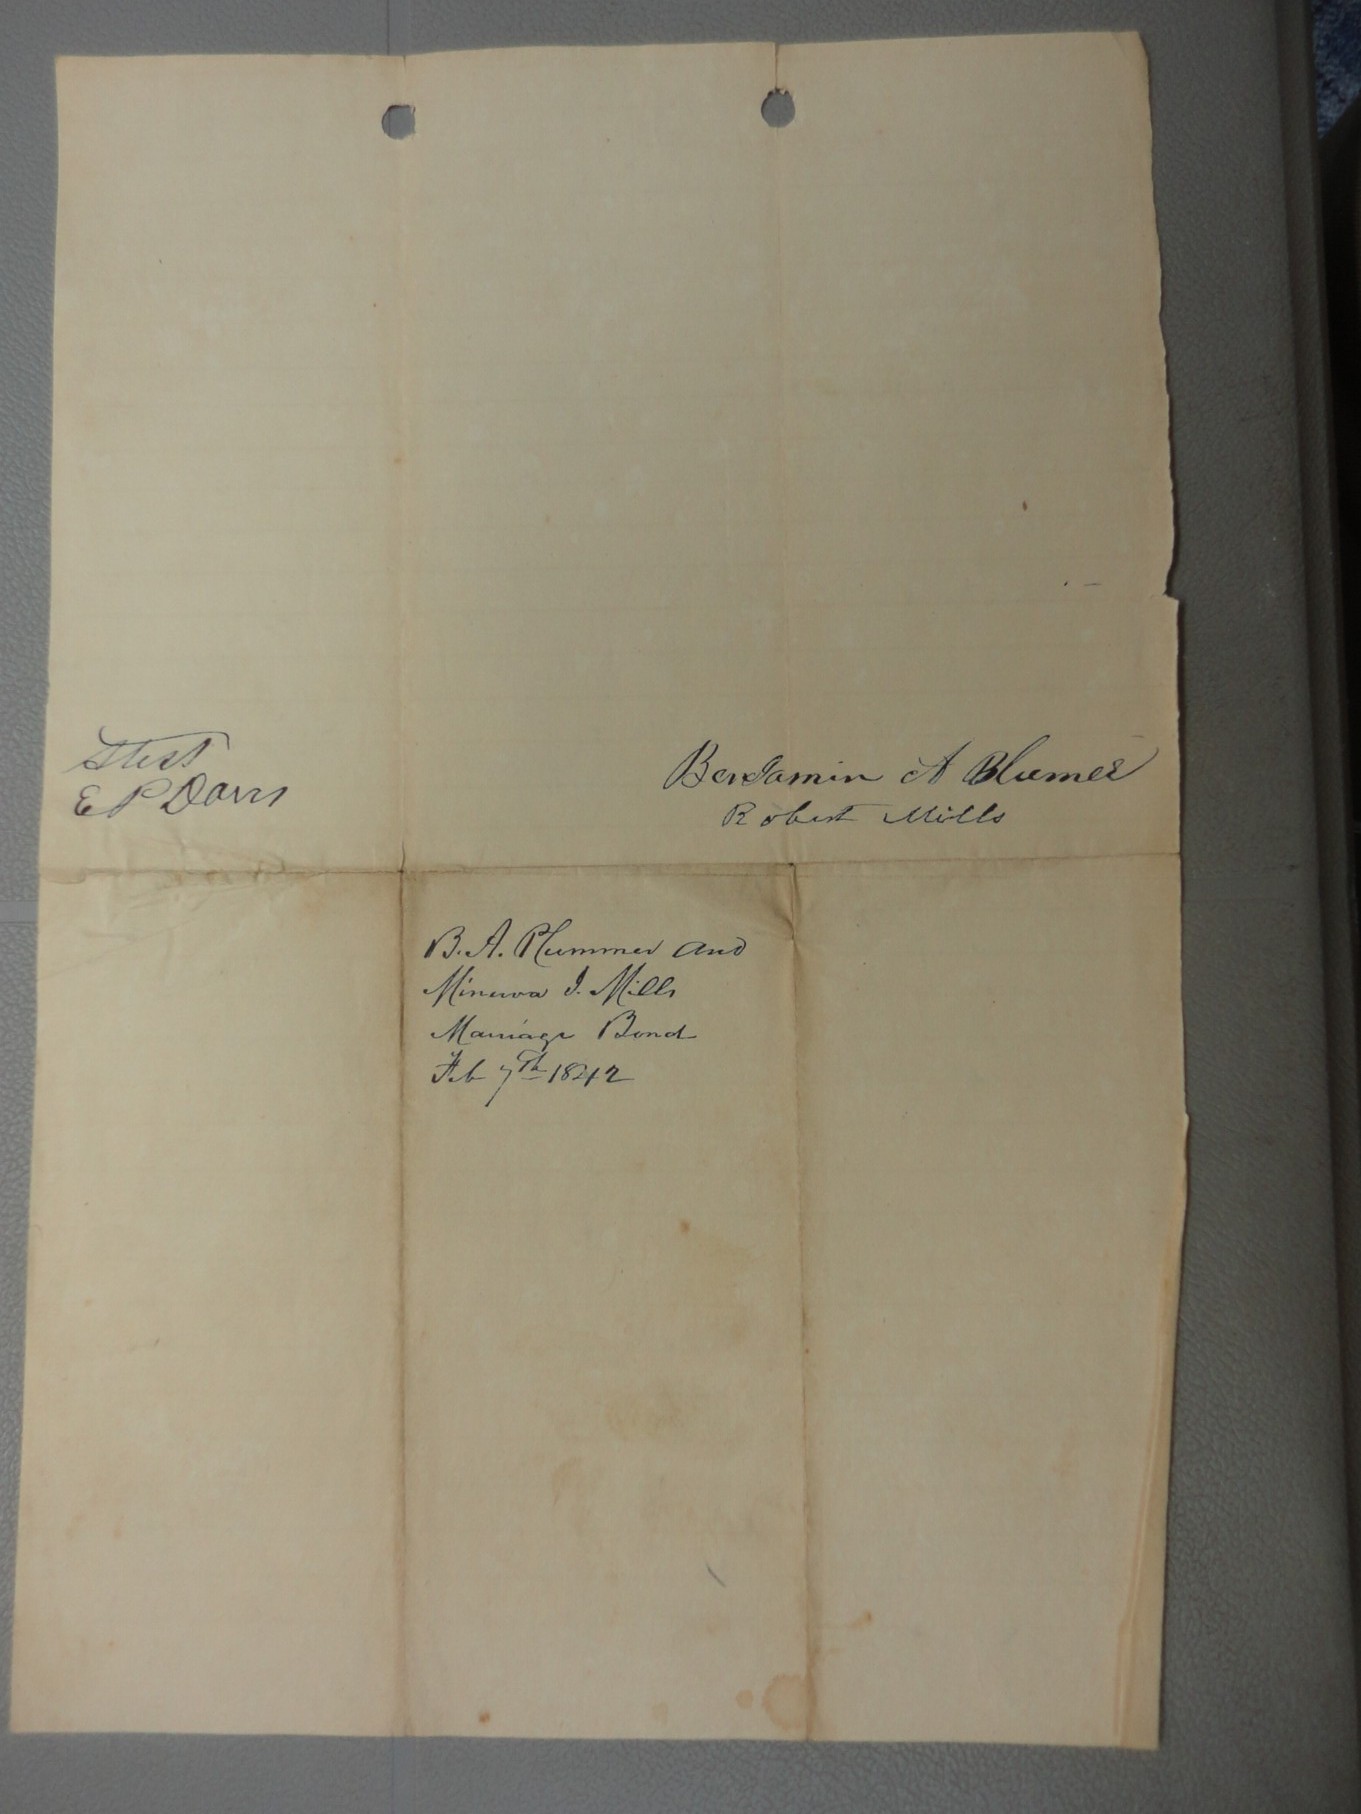 Attest
E P Davis
Benjamin A Plumer
Robert Mills
B. A. Plummer and
Minerva J. Mills
Marriage Bond
Feb 7th 1842